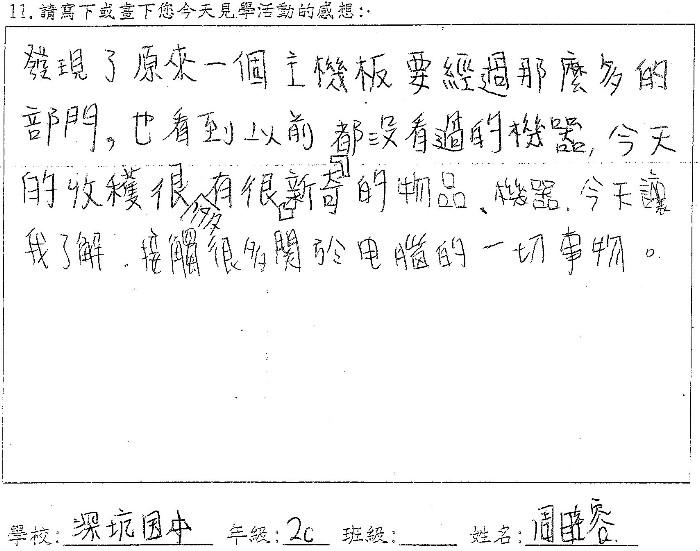 11.請寫下或畫下您今天見學活動的感想:
發現了原來一個主機板要經過那麼多的
部門,也看到以前都沒看過的機器,今天
的收穫很多,有很「新奇」的物品、機器.今天讓
我了解.接觸很多關於电腦的一切事物。
學校:深坑国中 年級:2c 班級: 姓名:周 容